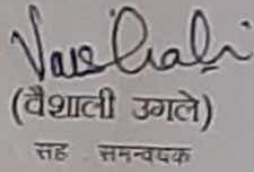 Vaishali
(वैशाली उगले)
सह समन्वयक